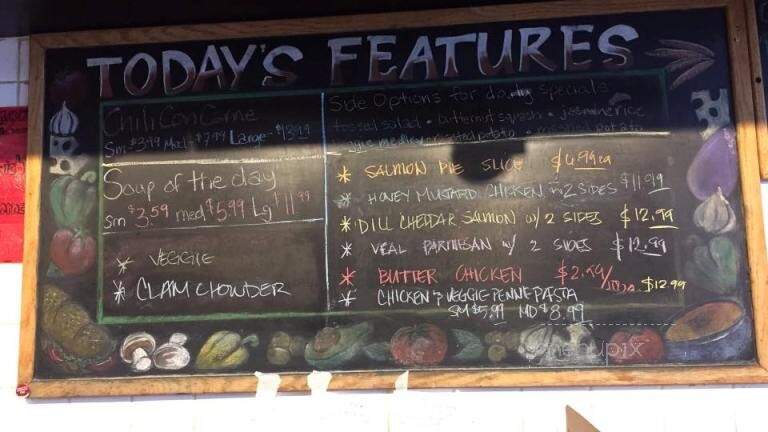 TODAY'S FEATURES
Chili Con Carne
Sm $3.99 Med $7.99 Large $13.99
Soup of the day
Sm $3.59 med $5.99 Lg $11.99
* VEGGIE
* CLAM CHOWDER
Side Options for daily specials
tossed salad • butternut squash • jasmine rice
roasted potato • potato
* SALMON PIE SLICE $4.99 ea
* HONEY MUSTARD CHICKEN w/ 2 SIDES $11.99
* DILL CHEDDAR SALMON w/ 2 SIDES $12.99
* VEAL PARMESAN w/ 2 SIDES $12.99
* BUTTER CHICKEN $2.99/100g. $12.99
* CHICKEN & VEGGIE PENNE PASTA
SM $5.99 MD $8.99
menupix